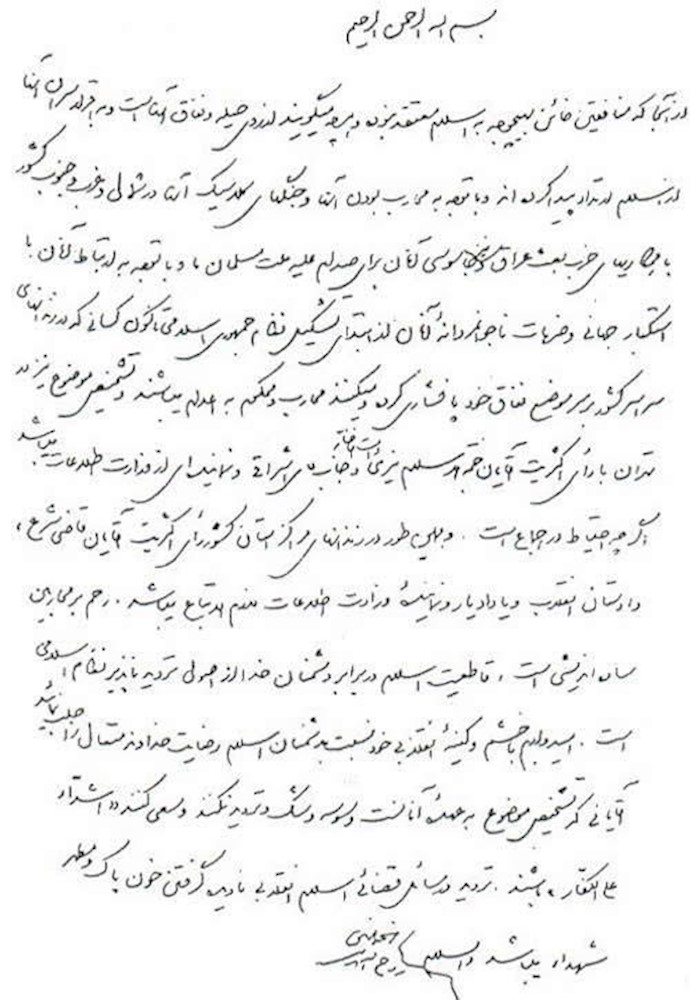 بسم الله الرحمن الرحیم
از آنجا که منافقین خائن بهیچوجه به اسلام معتقد نبوده و هر چه میگویند از روی حیله و نفاق آنهاست و به اقرار سران آنها
از اسلام ارتداد پیدا کرده‌اند و با توجه به محارب بودن آنها و جنگهای کلاسیک آنها در شمال و غرب و جنوب کشور
با همکاریهای حزب بعث عراق و نیز جاسوسی آنان برای صدام علیه ملت مسلمان ما و با توجه به ارتباط آنان با
استکبار جهانی و ضربات ناجوانمردانهٔ آنان از ابتدای تشکیل نظام جمهوری اسلامی تا کنون کسانی که در زندانهای
سراسر کشور بر سر موضع نفاق خود پافشاری کرده و میکنند محارب و محکوم به اعدام میباشند و تشخیص موضوع نیز در
تهران با رأی اکثریت آقایان حجةالاسلام نیری دامت افاضاته و جناب آقای اشراقی و نماینده‌ای از وزارت اطلاعات میباشد
اگر چه احتیاط در اجماع است . و همین طور در زندانهای مراکز استان کشور رأی اکثریت آقایان قاضی شرع ،
دادستان انقلاب و یا دادیار و نمایندهٔ وزارت اطلاعات لازم الاتباع میباشد . رحم بر محاربین
ساده اندیشی است ، قاطعیت اسلام در برابر دشمنان خدا از اصول تردید ناپذیر نظام اسلامی
است . امیدوارم با خشم و کینهٔ انقلابی خود نسبت به دشمنان اسلام رضایت خداوند متعال را جلب نمائید
آقایانی که تشخیص موضوع به عهدهٔ آنان است وسوسه و شک و تردید نکنند و سعی کنند « اشداء
علی الکفار » باشند . تردید در مسائل قضائی اسلام انقلابی نادیده گرفتن خون پاک و مطهر
شهداء میباشد والسلام روح الله الموسوی الخمینی